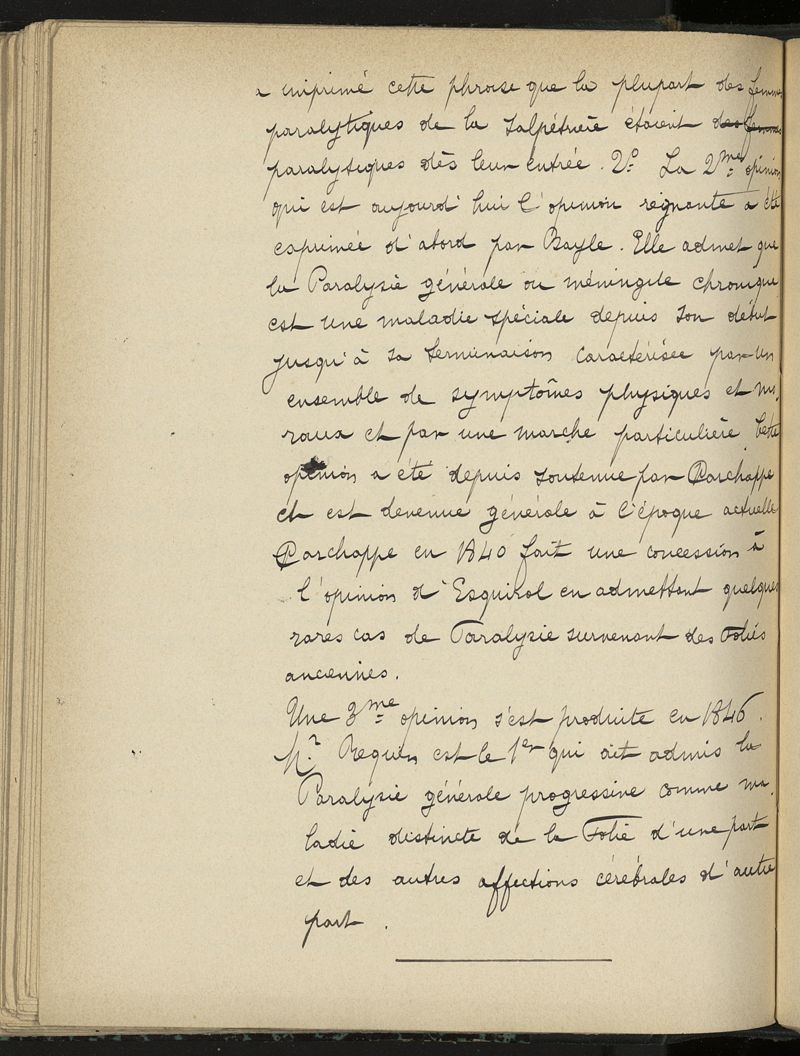 a imprimé cette phrase que la plupart des femmes
paralytiques de la Salpétrière étaient des femmes
paralytiques dès leur entrée. 2º La 2me opinion
qui est aujourd'hui l'opinion régnante a été
exprimée d'abord par Bayle. Elle admet que
la Paralysie générale ou méningite chronique
est une maladie spéciale depuis son début
jusqu'à sa terminaison caractérisée par un
ensemble de symptômes physiques et mo-
raux et par une marche particulière. Cette
opinion a été depuis soutenue par Parchappe
et est devenue générale à l'époque actuelle
Parchappe en 1840 fait une concession à
l'opinion d'Esquirol en admettant quelques
rares cas de Paralysie survenant des Folies
anciennes.
Une 3me opinion s'est produite en 1846.
Mr Requin est le 1er qui ait admis la
Paralysie générale progressive comme ma-
ladie distincte de la Folie d'une part
et des autres affections cérébrales d'autre
part.